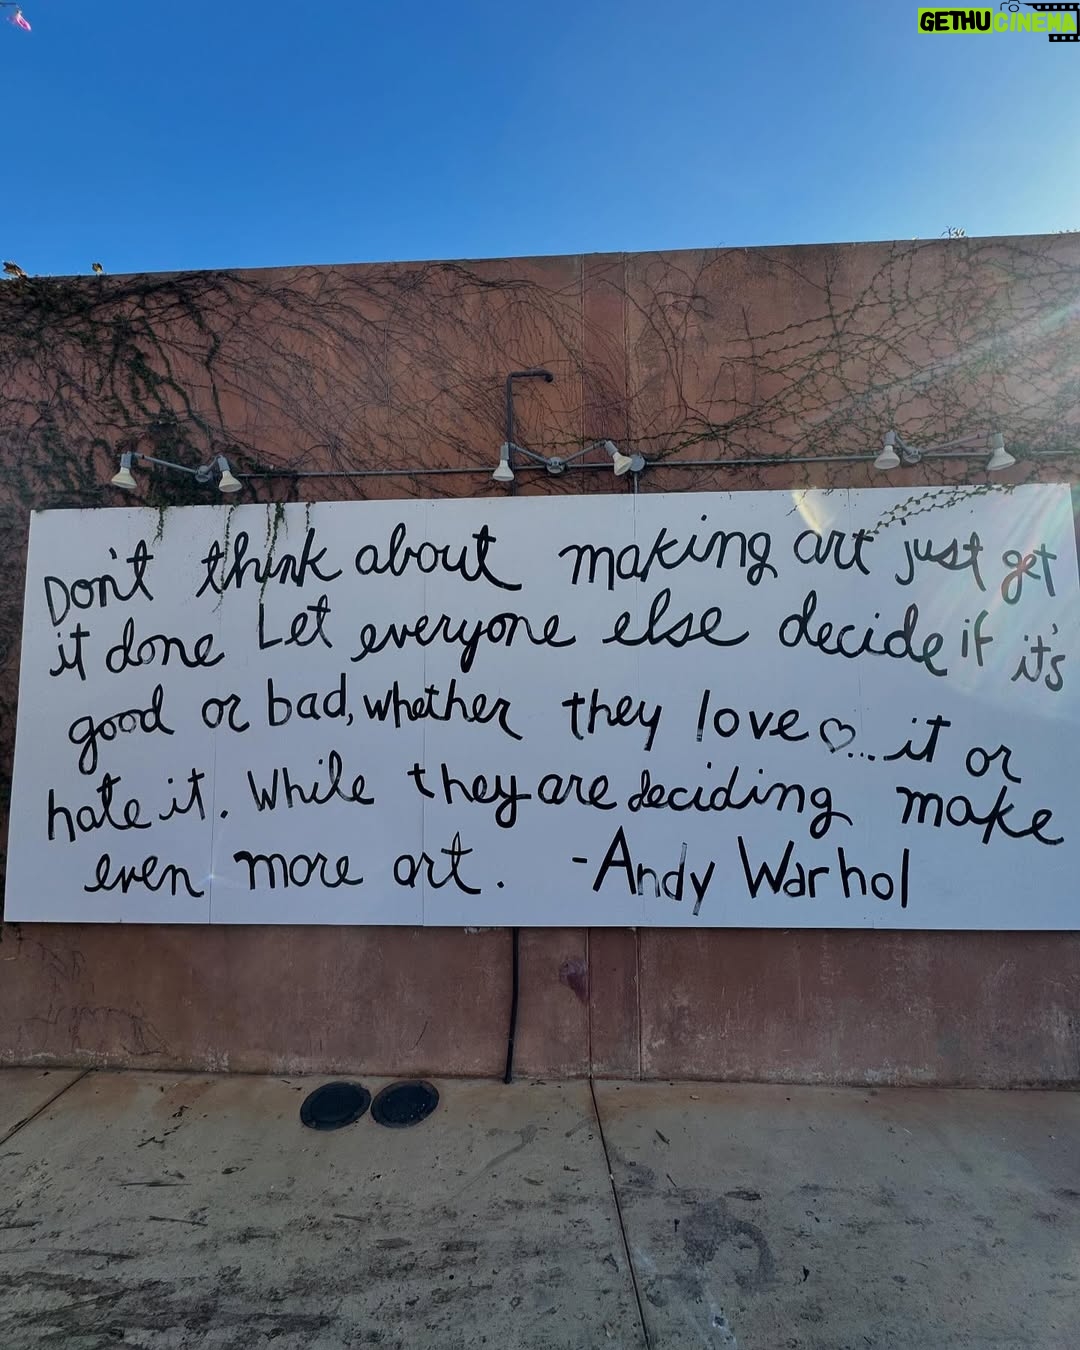 GETHUCINEMA
Don't think about making art just get
it done Let everyone else decide if it's
good or bad, whether they love♡...it or
hate it. While they are deciding make
even more art. -Andy Warhol